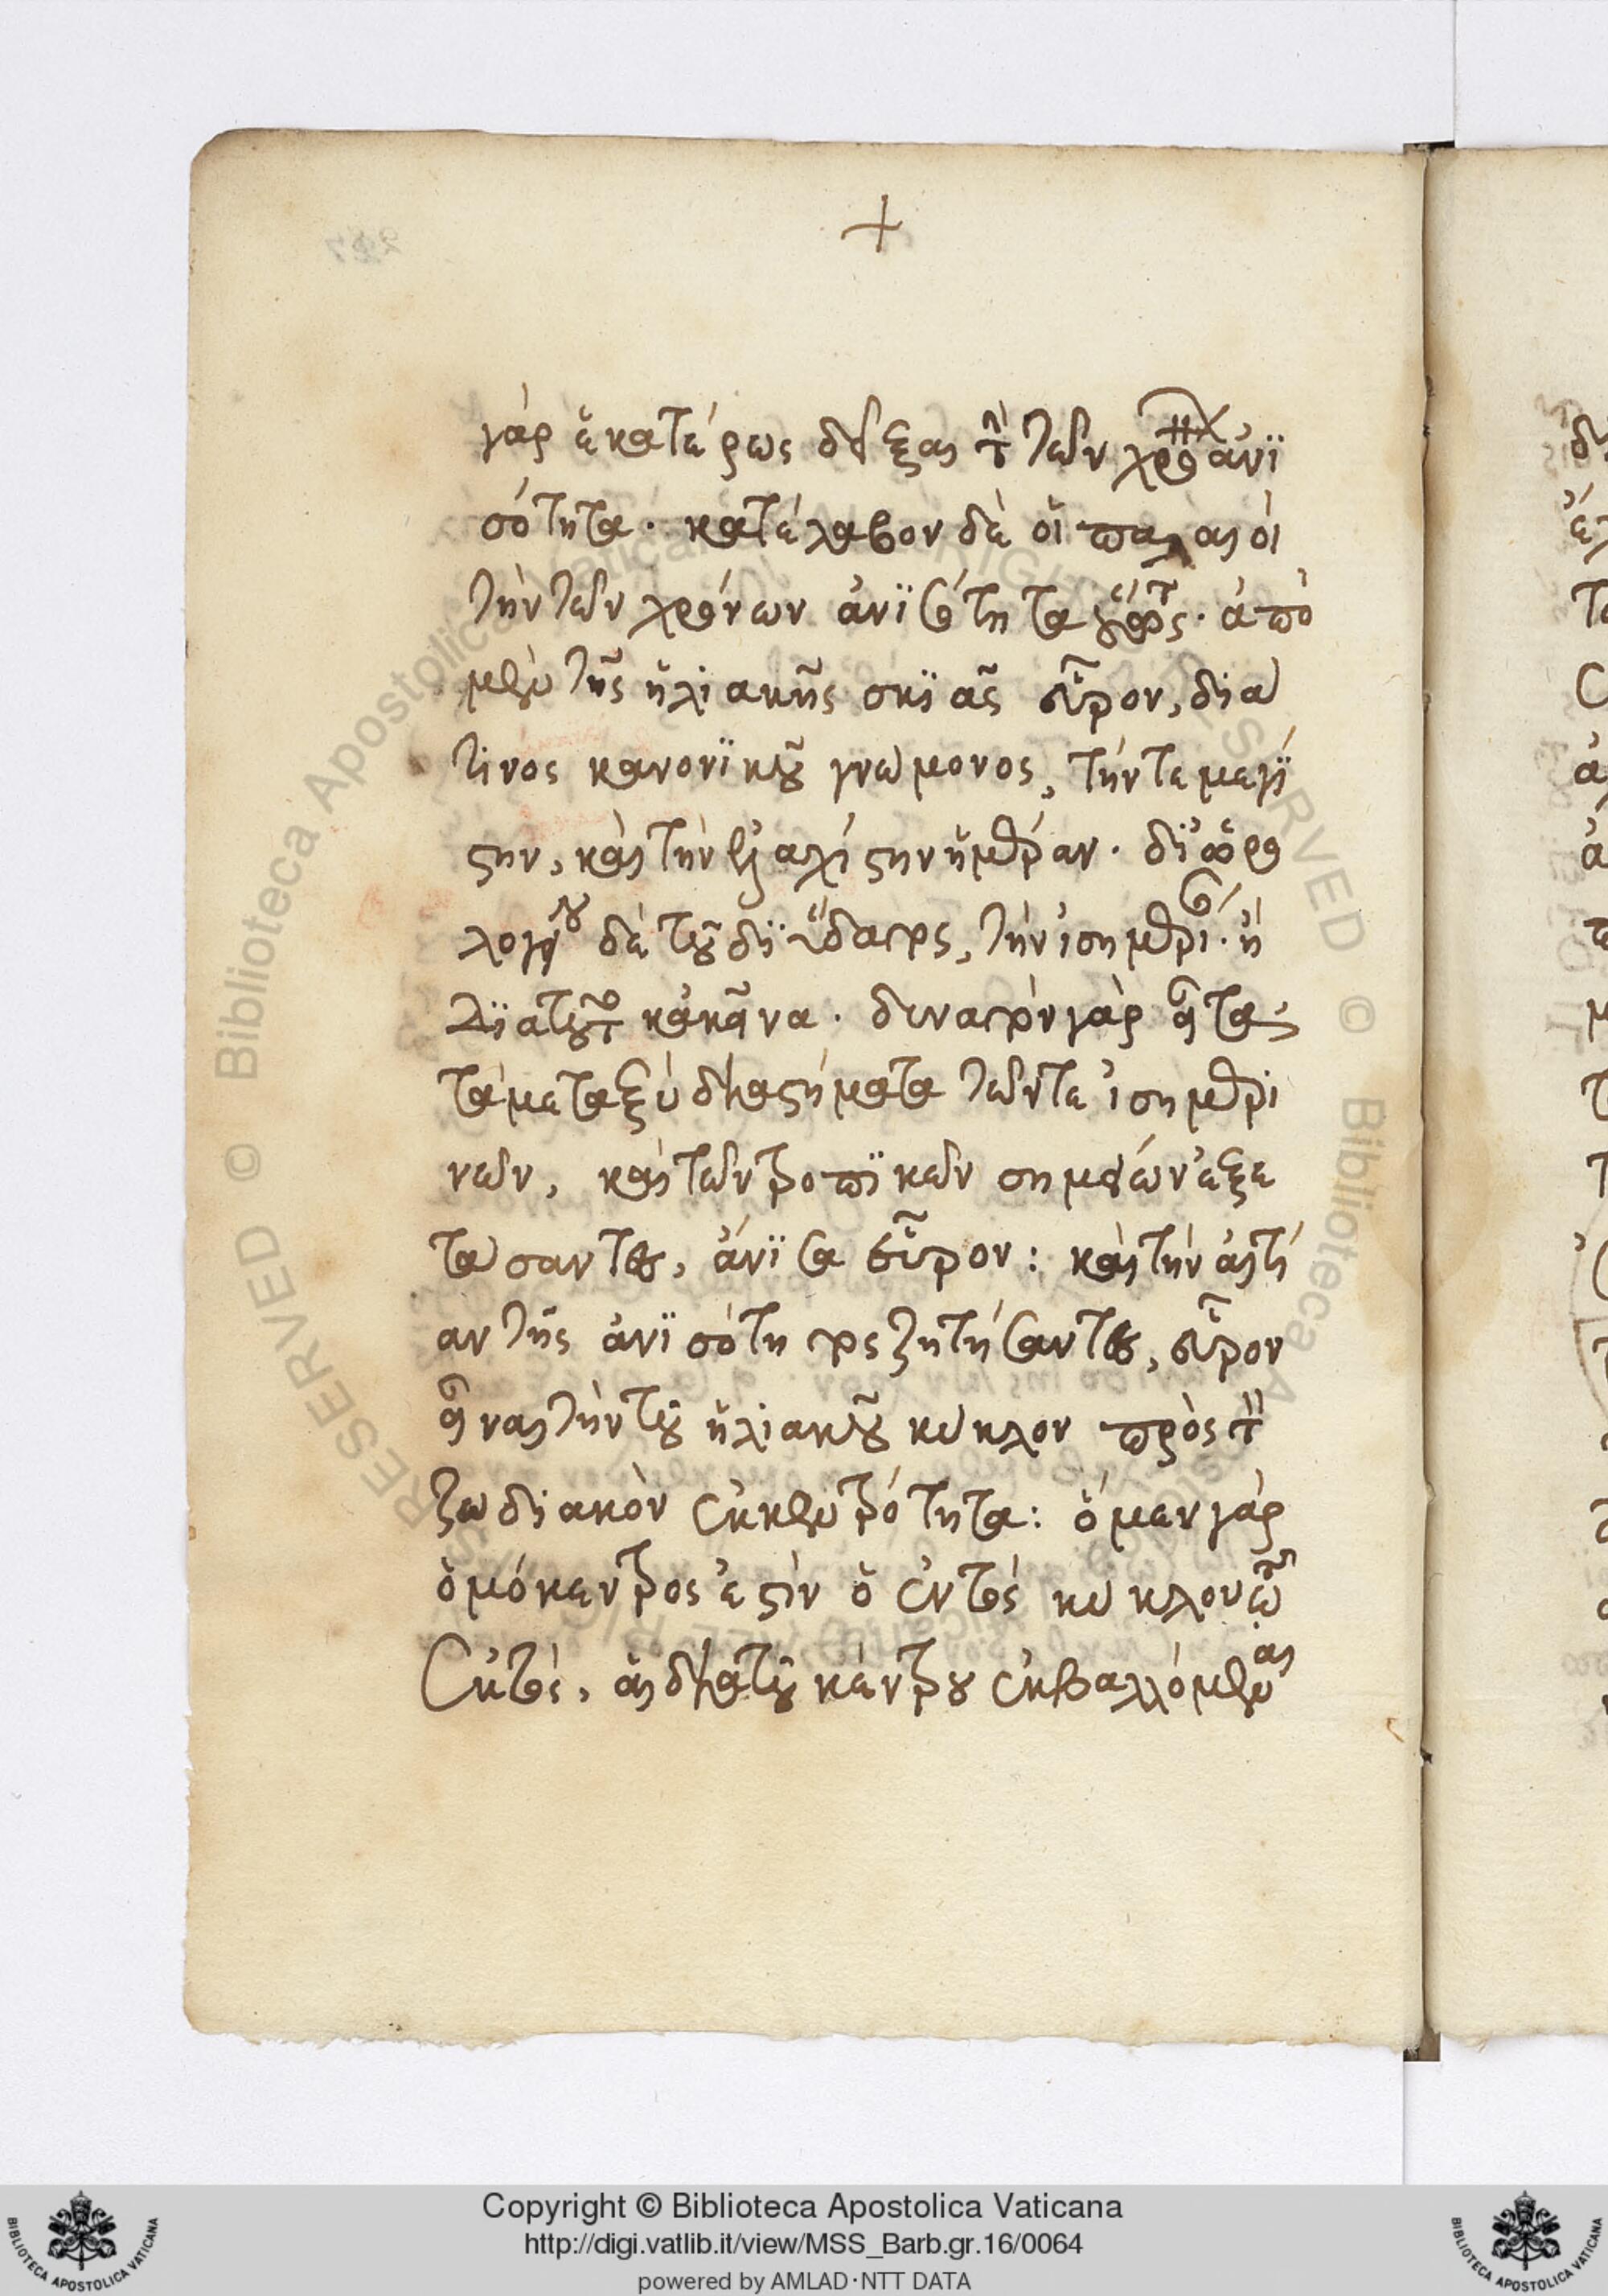 γὰρ ἑκατέρως δεῖξαι τὴν τῶν χρόνων ἀνϊ
σότητα· κατέλαβον δὲ οἱ παλαιοὶ
τὴν τῶν χρόνων ἀνϊσότητα οὕτως· ἀπὸ
μὲν τῆς ἡλιακῆς σκϊᾶς εὗρον, διά
τινος κανονϊκοῦ γνώμονος, τήν τε μεγί
στην, καὶ τὴν ἐλαχίστην ἡμέραν· δι' ὡρο
λογίου δὲ τοῦ δι' ὕδατος, τὴν ἰσημερίαν· ἢ
διὰ τοῦτο κἀκεῖνα· δυνατὸν γὰρ
τὰ μεταξὺ διαστήματα τῶν τε ἰσημερι
νῶν, καὶ τῶν τροπϊκῶν σημείων ἐξε
τάσαντες, ἄνϊσα εὗρον: καὶ τὴν αἰτί
αν τῆς ἀνϊσότητος ζητήσαντες, εὗρον
εἶναι τὴν τοῦ ἡλιακοῦ κύκλον πρὸς τὸν
ζωδιακὸν ἐκκεντρότητα: ὁ μεν γὰρ
ὁμόκεντρος ἐστὶν ὁ ἐντὸς κύκλον τῶ
ἐκτὸς, αἱ διὰ τοῦ κέντρου ἐκβαλλόμεναι
Copyright © Biblioteca Apostolica Vaticana
http://digi.vatlib.it/view/MSS_Barb.gr.16/0064
powered by AMLAD·NTT DATA